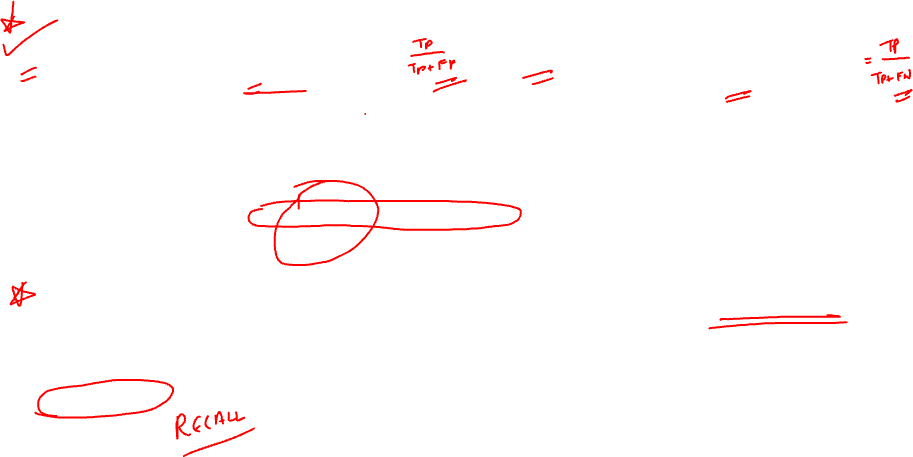 TP
TP+FP
= TP
TP+FN
RECALL